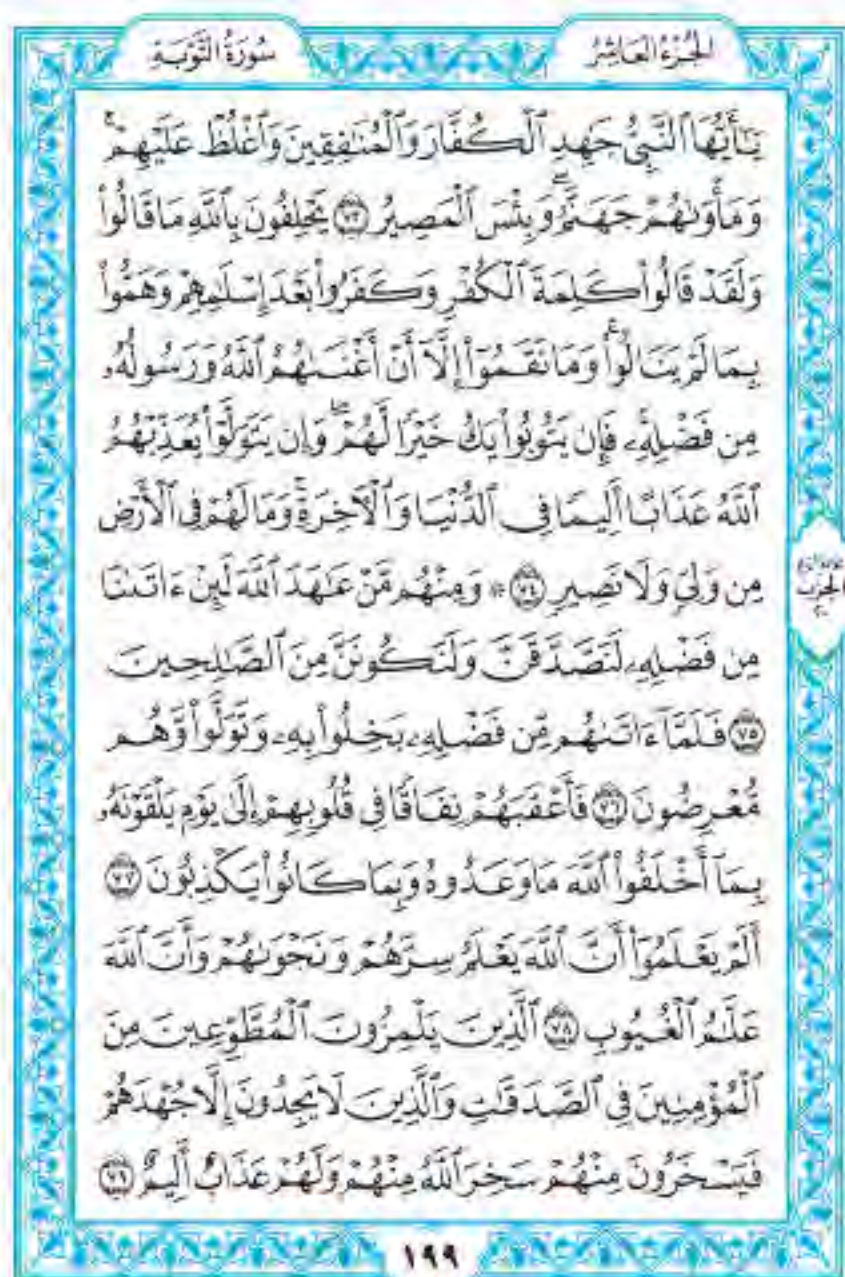 سُورَةُ التَّوْبَةِ
الجُزْءُ العَاشِرُ
يَـٰٓأَيُّهَا ٱلنَّبِىُّ جَـٰهِدِ ٱلْكُفَّارَ وَٱلْمُنَـٰفِقِينَ وَٱغْلُظْ عَلَيْهِمْ ۚ
وَمَأْوَىٰهُمْ جَهَنَّمُ ۖ وَبِئْسَ ٱلْمَصِيرُ ٧٣ يَحْلِفُونَ بِٱللَّهِ مَا قَالُوا۟
وَلَقَدْ قَالُوا۟ كَلِمَةَ ٱلْكُفْرِ وَكَفَرُوا۟ بَعْدَ إِسْلَـٰمِهِمْ وَهَمُّوا۟
بِمَا لَمْ يَنَالُوا۟ ۚ وَمَا نَقَمُوٓا۟ إِلَّآ أَنْ أَغْنَىٰهُمُ ٱللَّهُ وَرَسُولُهُۥ
مِن فَضْلِهِۦ ۚ فَإِن يَتُوبُوا۟ يَكُ خَيْرًا لَّهُمْ ۖ وَإِن يَتَوَلَّوْا۟ يُعَذِّبْهُمُ
ٱللَّهُ عَذَابًا أَلِيمًا فِى ٱلدُّنْيَا وَٱلْـَٔاخِرَةِ ۚ وَمَا لَهُمْ فِى ٱلْأَرْضِ
مِن وَلِىٍّ وَلَا نَصِيرٍ ٧٤ ۞ وَمِنْهُم مَّنْ عَـٰهَدَ ٱللَّهَ لَئِنْ ءَاتَىٰنَا
مِن فَضْلِهِۦ لَنَصَّدَّقَنَّ وَلَنَكُونَنَّ مِنَ ٱلصَّـٰلِحِينَ
٧٥ فَلَمَّآ ءَاتَىٰهُم مِّن فَضْلِهِۦ بَخِلُوا۟ بِهِۦ وَتَوَلَّوا۟ وَّهُم
مُّعْرِضُونَ ٧٦ فَأَعْقَبَهُمْ نِفَاقًا فِى قُلُوبِهِمْ إِلَىٰ يَوْمِ يَلْقَوْنَهُۥ
بِمَآ أَخْلَفُوا۟ ٱللَّهَ مَا وَعَدُوهُ وَبِمَا كَانُوا۟ يَكْذِبُونَ ٧٧
أَلَمْ يَعْلَمُوٓا۟ أَنَّ ٱللَّهَ يَعْلَمُ سِرَّهُمْ وَنَجْوَىٰهُمْ وَأَنَّ ٱللَّهَ
عَلَّـٰمُ ٱلْغُيُوبِ ٧٨ ٱلَّذِينَ يَلْمِزُونَ ٱلْمُطَّوِّعِينَ مِنَ
ٱلْمُؤْمِنِينَ فِى ٱلصَّدَقَـٰتِ وَٱلَّذِينَ لَا يَجِدُونَ إِلَّا جُهْدَهُمْ
فَيَسْخَرُونَ مِنْهُمْ ۙ سَخِرَ ٱللَّهُ مِنْهُمْ وَلَهُمْ عَذَابٌ أَلِيمٌ ٧٩
الحِزْبُ
٢٠
١٩٩